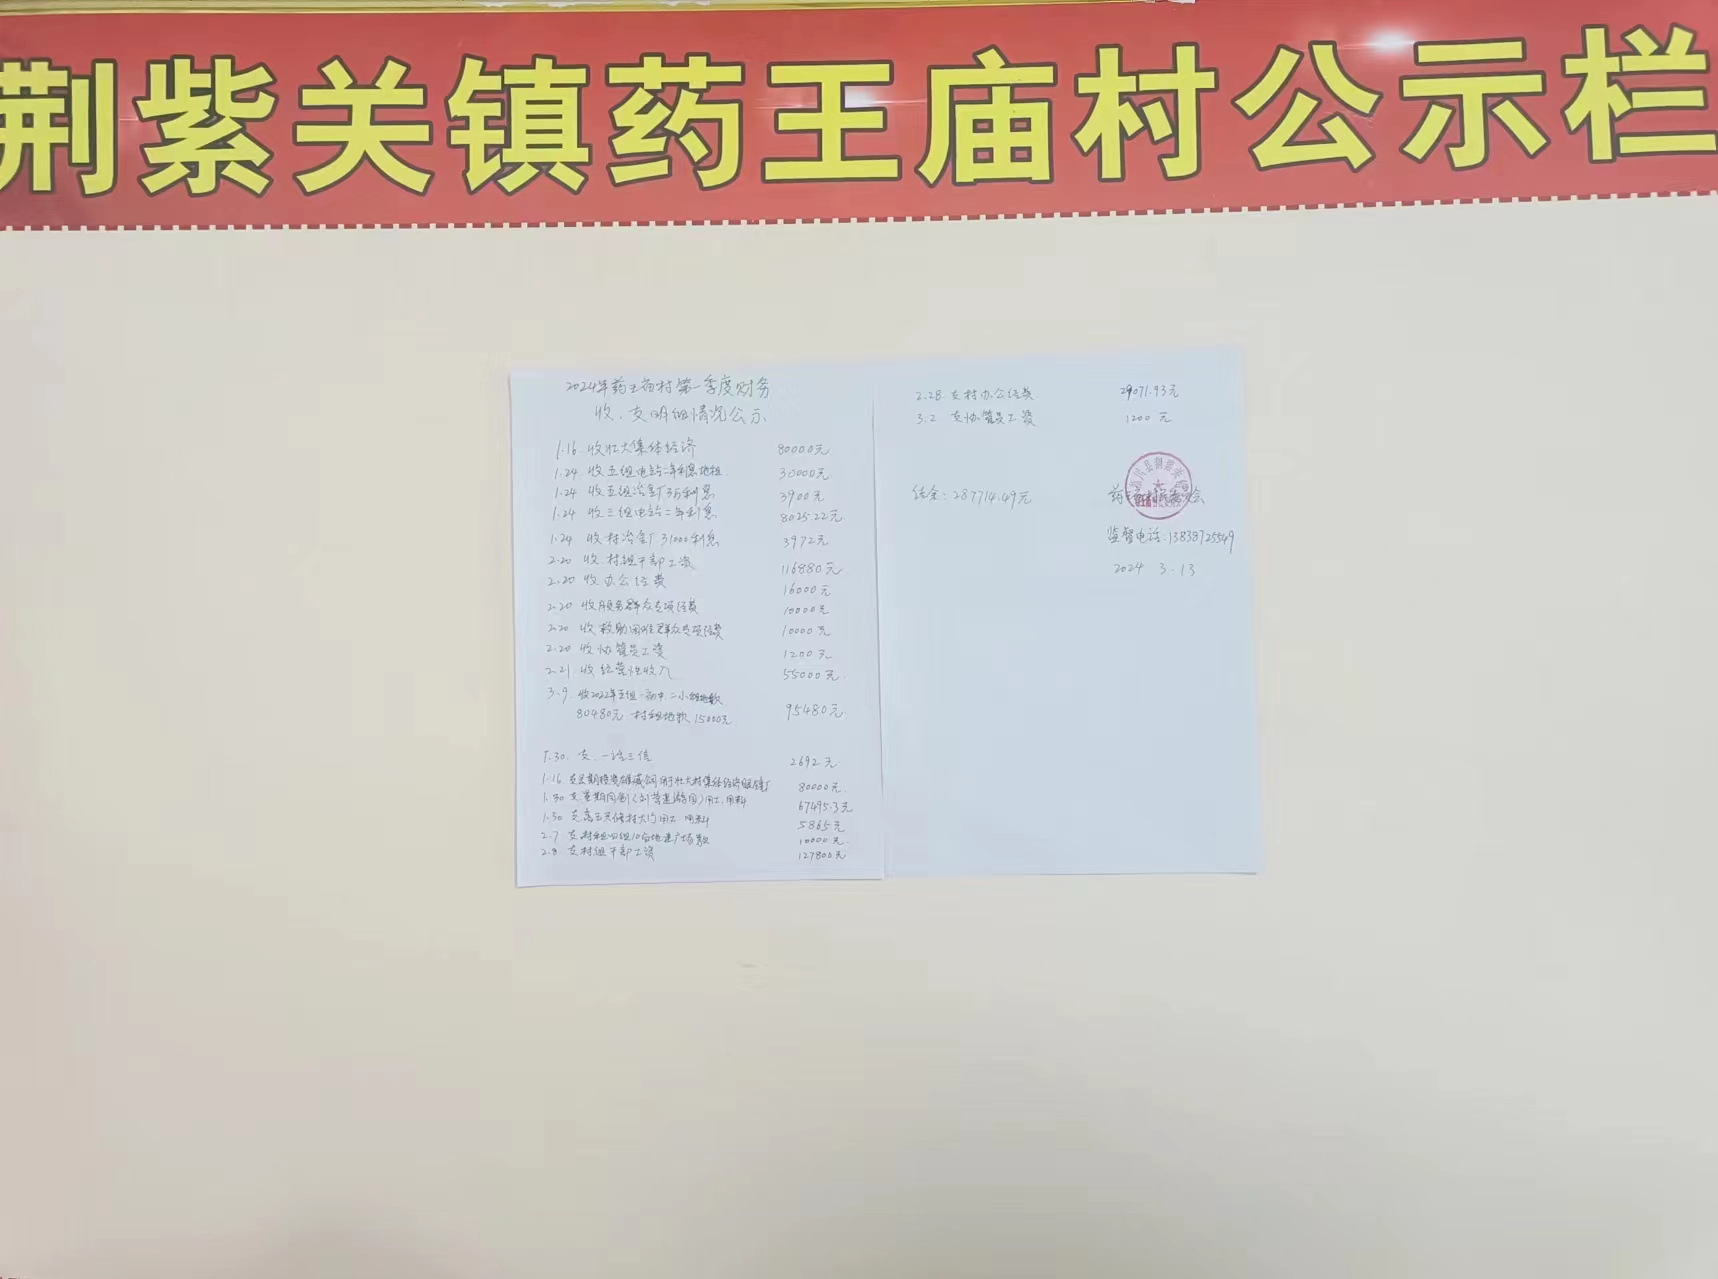 荆紫关镇药王庙村公示栏
2024年药王庙村第一季度财务
收、支明细情况公示
1.16 收壮大集体经济 80000元
1.24 收五组电站二年利息地租 30000元
1.24 收五组冶金厂3万利息 3900元
1.24 收三组电站二年利息 8025.22元
1.24 收村冶金厂31000利息 3972元
2.20 收村组干部工资 116880元
2.20 收办公经费 16000元
2.20 收服务群众专项经费 10000元
2.20 收救助困难群众专项经费 10000元
2.20 收协管员工资 1200元
2.21 收经营性收入 55000元
3.9. 收2022年五组一初中.二小租地款
80480元 村租地款 15000元 95480元
1.30. 支.一 三 2692元
1.16 支 用于壮大村集体经济 80000元
1.30 支 用工.用料 67495.3元
1.30 支 修村大门用工 用料 5865元
2.7 支村租四组10亩地建广场款 10000元
2.8 支村组干部工资 127800元
2.28 支村办公经费 29071.93元
3.2 支协管员工资 1200元
结余: 287714.49元
药王庙村 委员会
监督电话:13838725549
2024 3.13